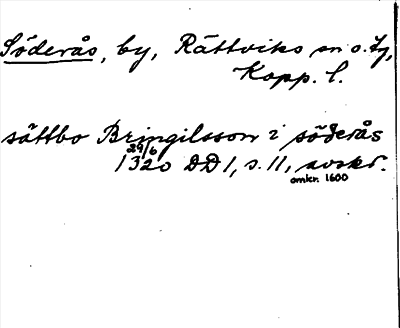 Söderås, by, Rättviks sn o. tg,
Kopp. l.
sättbo Bringilsson i söderås
29/6
1320 DD 1, s. 11, avskr.
omkr. 1600